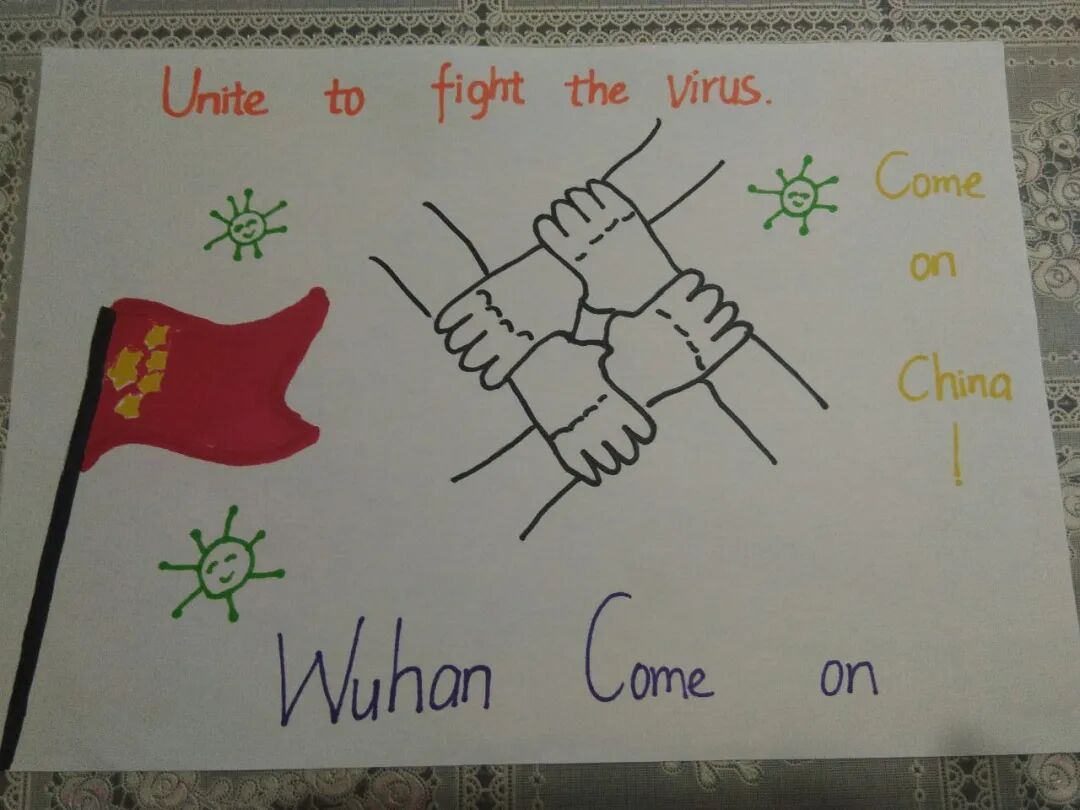 Unite to fight the virus.
Come
on
China
!
Wuhan Come on